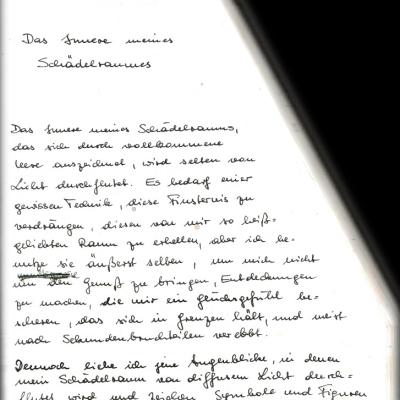 Das Innere meines
Schädelraumes
Das Innere meines Schädelraums,
das sich durch vollkommene
Leere auszeichnet, wird selten von
Licht durchflutet. Es bedarf einer
gewissen Technik, diese Finsternis zu
verdrängen, diesen von mir so heiß-
geliebten Raum zu erhellen, aber ich be-
nutze sie äußerst selben, um mich nicht
um den Genuß zu bringen, Entdeckungen
zu machen, die mir ein Glücksgefühl be-
scheren, das sich in Grenzen hält, und meist
nach Sekundenbruchteilen verebbt.
Dennoch liebe ich jene Augenblicke, in denen
mein Schädelraum von diffusem Licht durch-
flutet wird und Zeichen, Symbole und Figuren